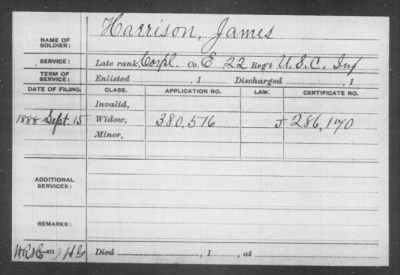 NAME OF SOLDIER: Harrison, James
SERVICE: Late rank, Corpl. Co. E 22 Regt U.S.C. Inf
TERM OF SERVICE: Enlisted , 1 Discharged , 1
DATE OF FILING. CLASS. APPLICATION NO. LAW. CERTIFICATE NO.
Invalid,
1888 Sept. 15 Widow, 380,516 286,170
Minor,
ADDITIONAL SERVICES:
REMARKS:
Died , 1 , at